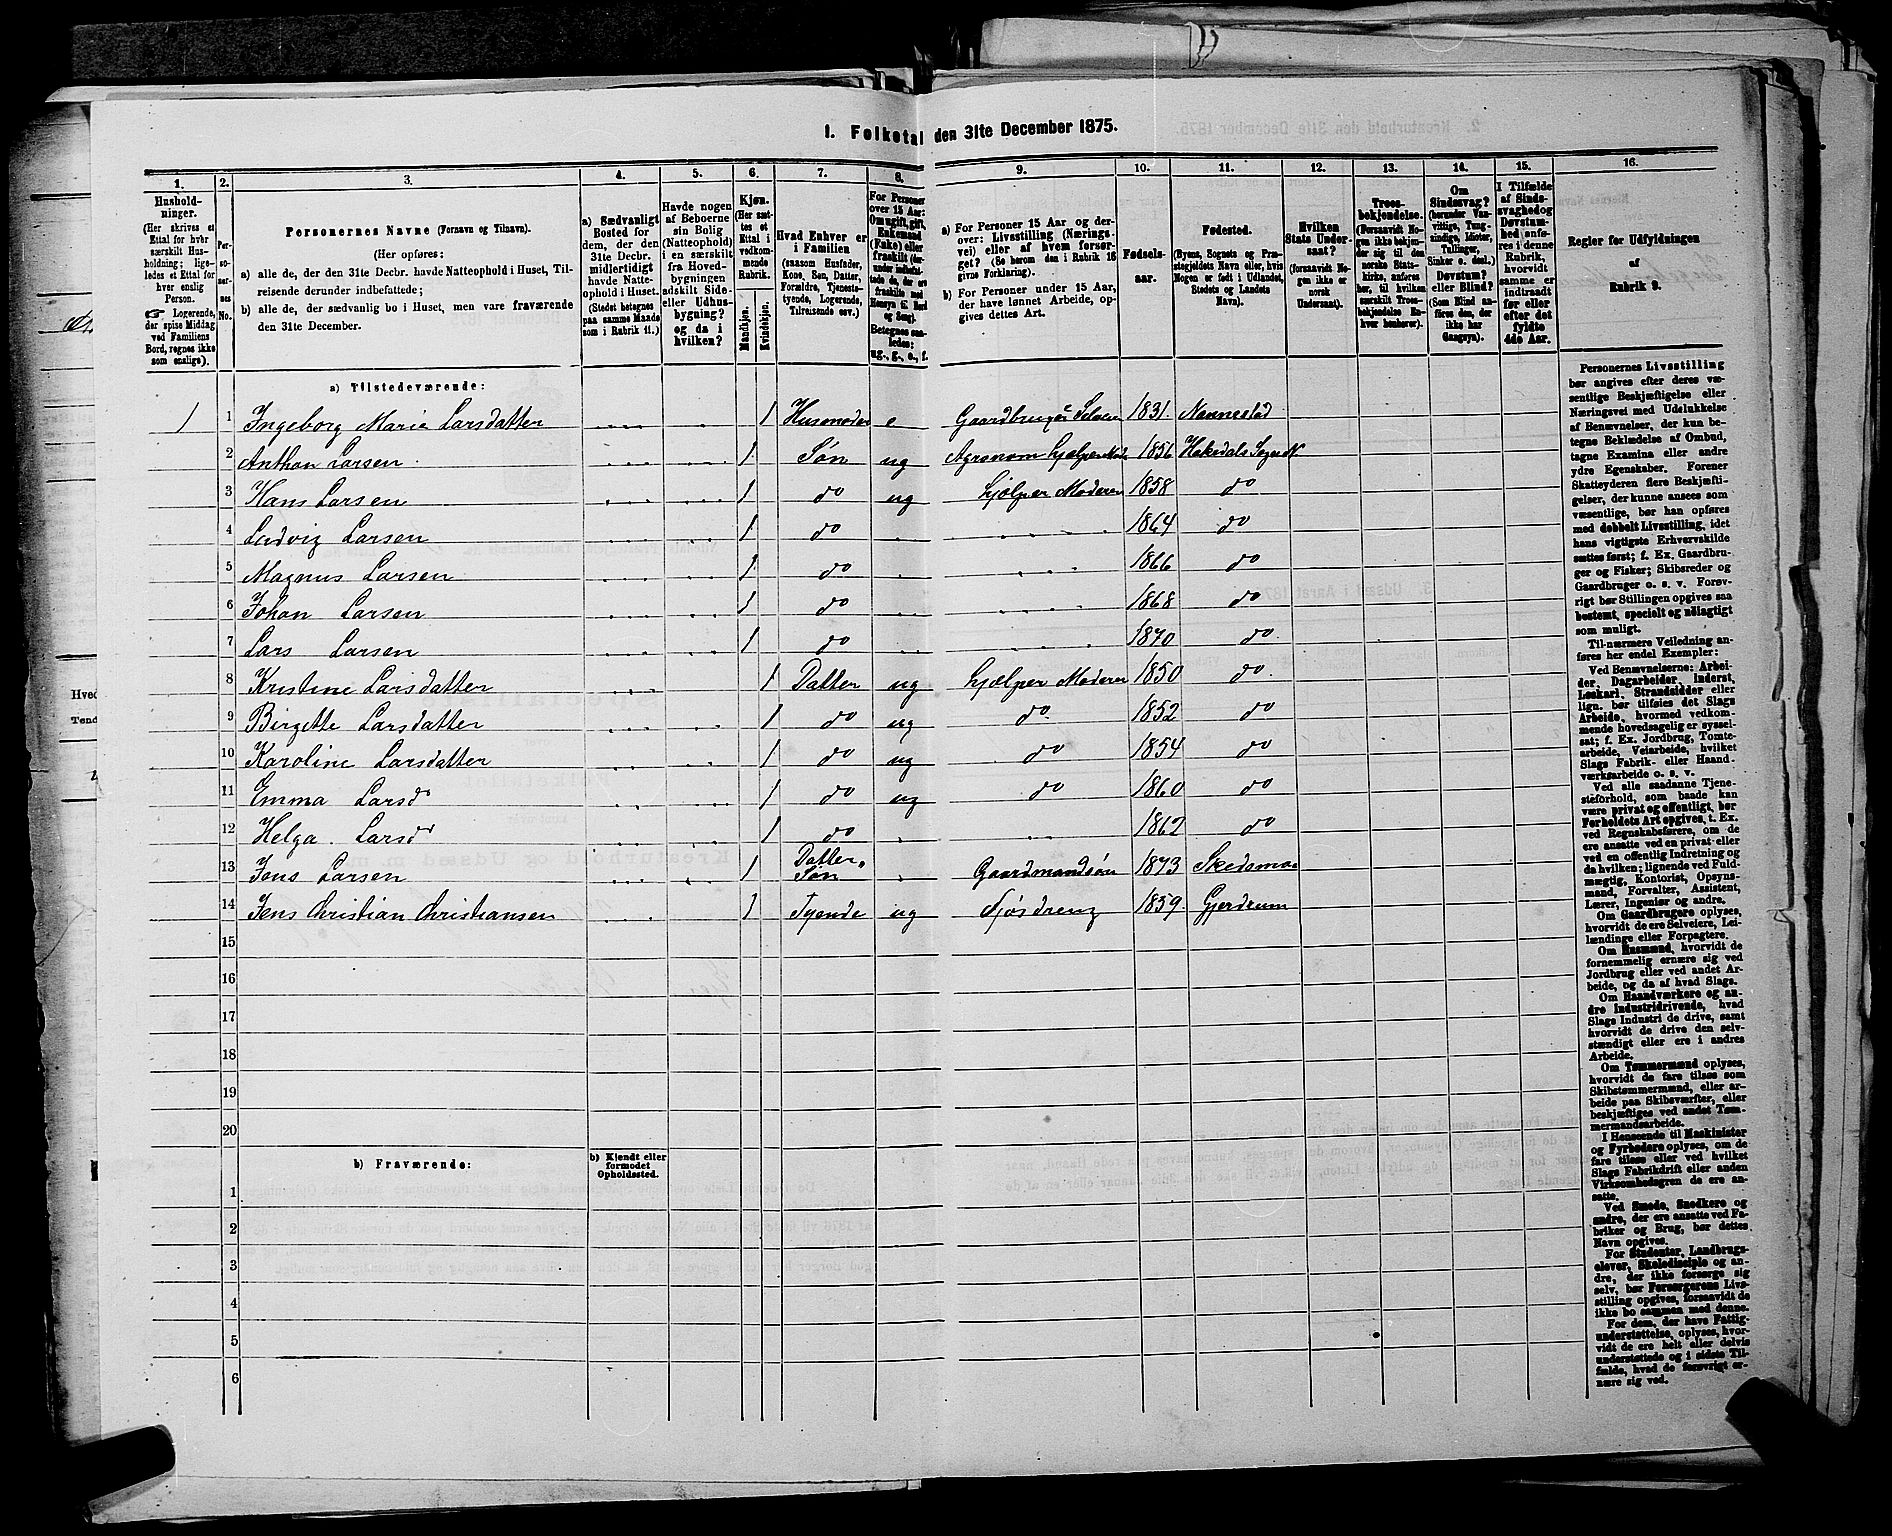 1. Folketal den 31te December 1875.
1. 2. 3. 4. 5. 6. 7. 8. 9. 10. 11. 12. 13. 14. 15. 16.
Hushold-
ninger.
(Her skrives et
Ettal for hvær
særskilt Hus-
holdning; lige-
ledes et Ettal for
hver enslig
Person.
☞ Logerende,
der spise Middag
ved Familiens
Bord, regnes ikke
som enslige).
Per-
so-
ner-
nes
No.
Personernes Navne (Fornavn og Tilnavn).
(Her opføres:
a) alle de, der den 31te Decbr. havde Natteophold i Huset, Til-
reisende derunder indbefattede;
b) alle de, der sædvanlig bo i Huset, men vare fraværende
den 31te December.
a) Sædvanligt
Bosted for
dem, der den
31te Decbr.
midlertidigt
havde Natte-
ophold i Huset.
(Stedet betegnes
paa samme Maade
som i Rubrik 11.)
Havde nogen
af Beboerne
sin Bolig
(Natteophold)
i en særskilt
fra Hoved-
bygningen
adskilt Side-
eller Udhus-
bygning?
og da i
hvilken?
Kjøn.
(Her sæt-
tes et
Ettal i
vedkom-
mende
Rubrik.
Mandkjøn.
Kvindekjøn.
Hvad Enhver er
i Familien
(saasom Husfader,
Kone, Søn, Datter,
Forældre, Tjeneste-
tyende, Logerende,
Tilreisende osv.)
For Personer
over 15 Aar:
Om ugift, gift,
Enkemand
(Enke) eller
fraskilt (der-
under indbefat-
tede de, der ere
fraskilte med
Hensyn til Bord
og Seng).
Betegnes saa-
ledes:
ug., g., e., f.
a) For Personer 15 Aar og der-
over: Livsstilling (Nærings-
vei) eller af hvem forsør-
get? (Se herom den i Rubrik 16
givne Forklaring).
b) For Personer under 15 Aar,
der have lønnet Arbeide, op-
gives dettes Art.
Fødsels-
aar.
Fødested.
(Byens, Sognets og Præ-
stegjeldets Navn eller, hvis
Nogen er født i Udlandet,
Stedets og Landets
Navn).
Hvilken
Stats Under-
saat?
(forsaavidt No-
gen ikke er
norsk
Undersaat).
Troes-
bekjendelse.
(Forsaavidt No-
gen ikke bekjen-
der sig til den
norske Stats-
kirke, anføres
her, til hvilken
særskilt Troes-
bekjendelse En-
hver henhører).
Om
Sindssvag?
(herunder Van-
vittige, Tung-
sindige, Idioter,
Tullinger,
Sinker o. desl.)
Døvstum?
eller Blind?
(Som Blind an-
føres den, der
ikke har
Gangsyn).
I Tilfælde
af Sinds-
svaghed og
Døvstum-
hed anfø-
res i denne
Rubrik,
hvorvidt
samme er
indtraadt
før eller
efter det
fyldte
4de Aar.
Regler for Udfyldningen
af
Rubrik 9.
a) Tilstedeværende:
1 1 Ingeborg Marie Larsdatter 1 Husmoder e Gaardbruger Selveier 1831 Nannestad
2 Anthon Larsen 1 Søn ug Agronom hjælper Mod 1856 Hakedals Sogn N
3 Hans Larsen 1 do ug hjælper Moderen 1858 do
4 Ludvig Larsen 1 do 1864 do
5 Magnus Larsen 1 do 1866 do
6 Johan Larsen 1 do 1868 do
7 Lars Larsen 1 do 1870 do
8 Kristine Larsdatter 1 Datter ug hjælper Moderen 1850 do
9 Birgette Larsdatter 1 do ug do 1852 do
10 Karoline Larsdatter 1 do ug do 1854 do
11 Emma Larsd 1 do ug do 1860 do
12 Helga Larsd 1 do 1862 do
13 Jens Larsen 1 Datter Søn Gaardmandsøn 1873 Skedsmo
14 Jens Christian Christiansen 1 Tyende ug Fjøsdreng 1859 Gjerdrum
15
16
17
18
19
20
b) Fraværende:
b) Kjendt eller
formodet
Opholdssted.
1
2
3
4
5
6
Personernes Livsstilling
bør angives efter deres væ-
sentlige Beskjæftigelse eller
Næringsvei med Udelukkelse
af Benævnelser, der kun be-
tegne Beklædelse af Ombud,
tagne Examina eller andre
ydre Egenskaber. Forener
Skatteyderen flere Beskjæfti-
gelser, der kunne ansees som
væsentlige, bør han opføres
med dobbelt Livsstilling, idet
hans vigtigste Erhvervskilde
sættes først; f. Ex. Gaardbru-
ger og Fisker; Skibsreder og
Gaardbruger o. s. v. Forøv-
rigt bør Stillingen opgives saa
bestemt, specielt og nøiagtigt
som muligt.
Til nærmere Veiledning an-
føres her endel Exempler:
Ved Benævnelserne: Arbei-
der, Dagarbeider, Inderst,
Løskarl, Strandsidder eller
lign. bør tilføies det Slags
Arbeide, hvormed vedkom-
mende hovedsagelig er syssel-
sat; f. Ex. Jordbrug, Tomte-
arbeide, Veiarbeide, hvilket
Slags Fabrik- eller Haand-
værksarbeide o. s. v.
Ved alle saadanne Tjene-
steforhold, som baade kan
være privat og offentligt, bør
Forholdets Art opgives, t. Ex.
ved Regnskabsførere, om de
ere ansatte ved en privat eller
ved en offentlig Indretning og
da hvilken; lignende ved Fuld-
mægtig, Kontorist, Opsyns-
mand, Forvalter, Assistent,
Lærer, Ingeniør og andre.
Om Gaardbrugere oplyses,
hvorvidt de ere Selveiere, Lei-
lændinge eller Forpagtere.
Om Husmænd, hvorvidt de
fornemmelig ernære sig ved
Jordbrug eller ved andet Ar-
beide, og da af hvad Slags.
Om Haandværkere og an-
dre industridrivende, hvad
Slags Industri de drive, samt
hvorvidt de drive den selv-
stændigt eller ere i andres
Arbeide.
Om Tømmermænd oplyses,
hvorvidt de fare tilsøs som
Skibstømmermænd, eller ar-
beide paa Skibsværfter, eller
beskjæftiges ved andet Tøm-
mermandsarbeide.
I Henseende til Maskinister
og Fyrbødere oplyses, om de
fare tilsøs eller ved hvilket
Slags Fabrikdrift eller anden
Virksomhedsgren de ere an-
satte.
Ved Smede, Snedkere og
andre, der ere ansatte ved Fa-
briker og Brug, bør dettes
Navn opgives.
For Studenter, Landbrugs-
elever, Skoledisciple og an-
dre, der ikke forsørge sig
selv, bør Forsørgerens Livs-
stilling opgives, forsaavidt de
ikke bo sammen med denne.
For dem, der have Fattig-
understøttelse, oplyses, hvor-
vidt de ere helt eller delvis
understøttede og i sidste Til-
fælde, hvad de forøvrigt er-
nære sig ved.